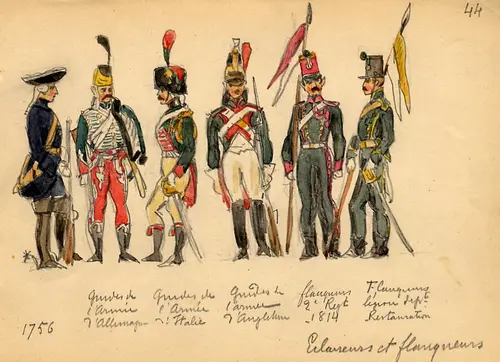 44
1756
Guides de
l'Armée
d'Allemagne
Guides de
l'Armée
d'Italie
Guides de
l'armée
d'Angleterre
flanqueurs
2e Regt
1814
Flanqueurs
légion dept
Restauration
Eclaireurs et flanqueurs